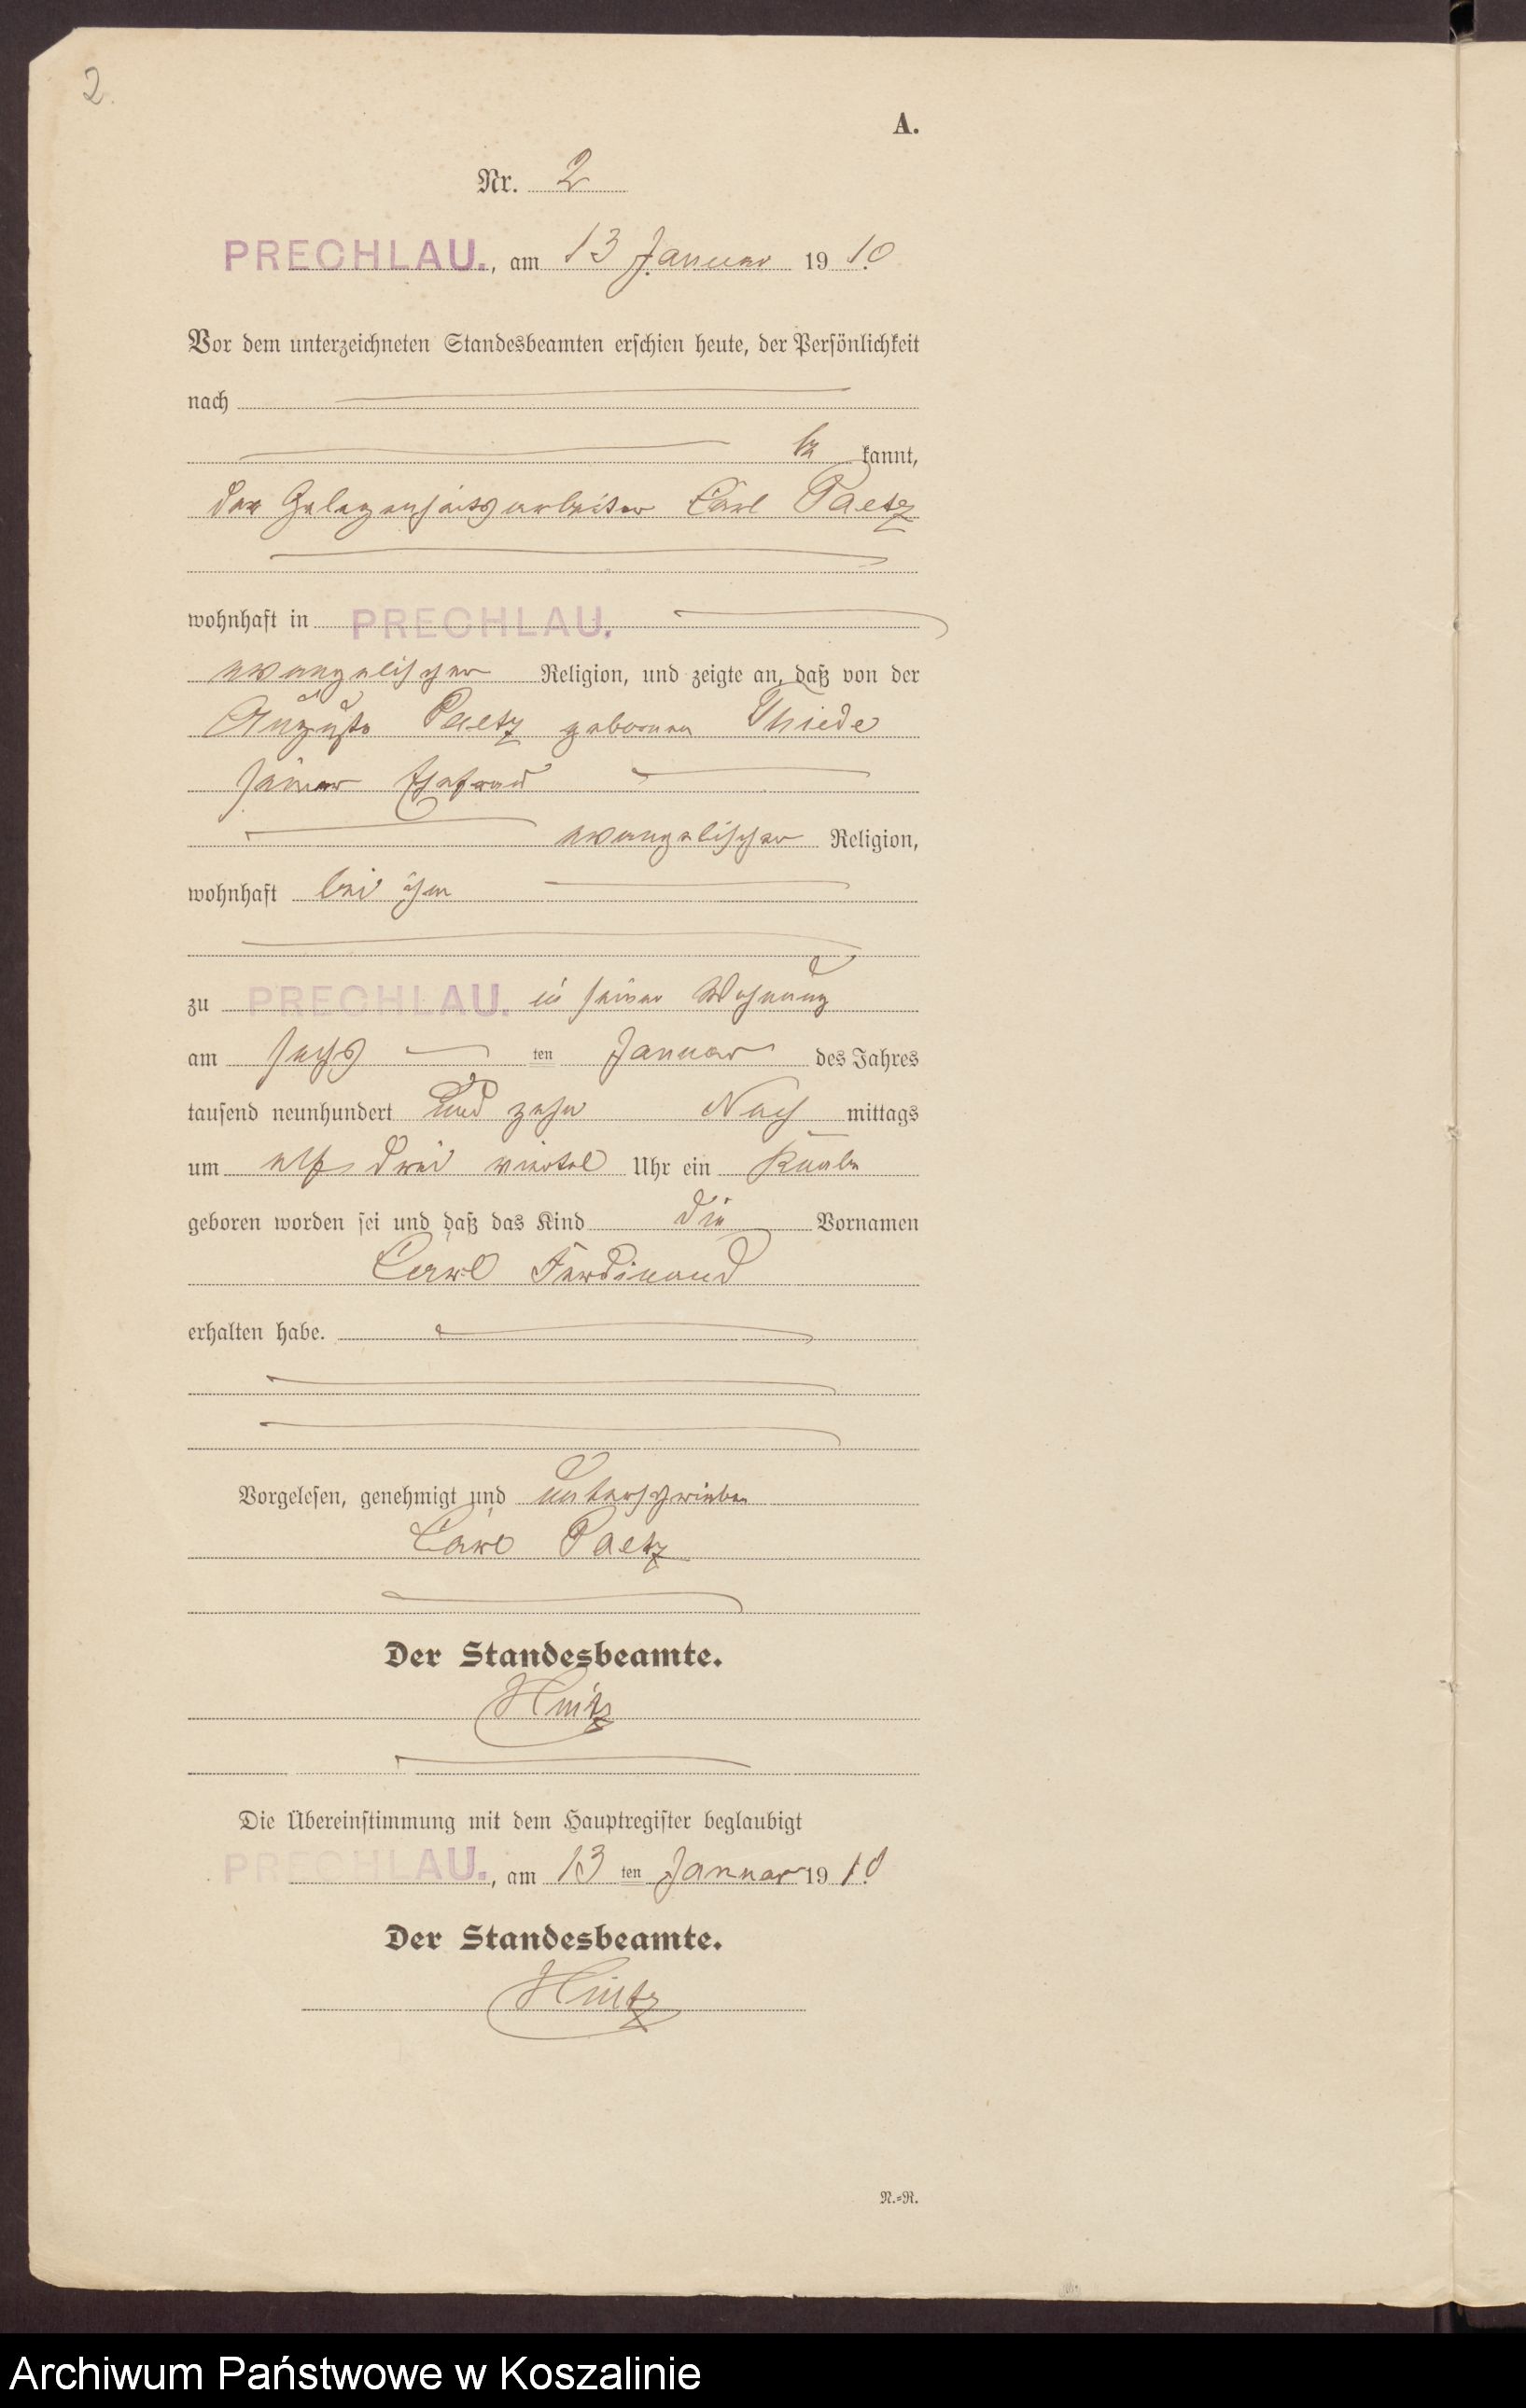 2.
A.
Nr. 2
PRECHLAU., am 13 Januar 1910
Vor dem unterzeichneten Standesbeamten erschien heute, der Persönlichkeit
nach
be kannt,
der Gelegenheitsarbeiter Carl Paetz
wohnhaft in PRECHLAU.
evangelischer Religion, und zeigte an, daß von der
Auguste Paetz geborenen Thiede
seiner Ehefrau
evangelischer Religion,
wohnhaft bei ihm
zu PRECHLAU. in seiner Wohnung
am sechs ten Januar des Jahres
tausend neunhundert und zehn Nach mittags
um elf drei viertel Uhr ein Knabe
geboren worden sei und daß das Kind die Vornamen
Carl Ferdinand
erhalten habe.
Vorgelesen, genehmigt und unterschrieben
Carl Paetz
Der Standesbeamte.
Hintz
Die Übereinstimmung mit dem Hauptregister beglaubigt
PRECHLAU., am 13 ten Januar 1910
Der Standesbeamte.
Hintz
N.=R.
Archiwum Państwowe w Koszalinie